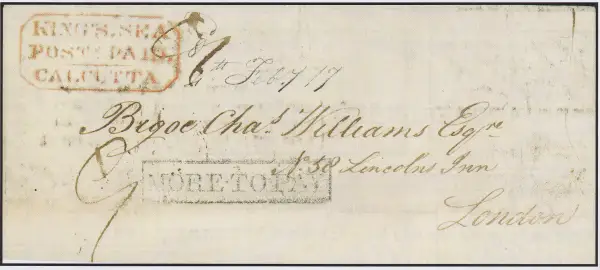 KING'S. SEA
POST. PAID.
CALCUTTA
6th Feby 17
Brigoe Chas. Williams Esqre
No 58 Lincolns Inn
MORE·TO·PAY
London